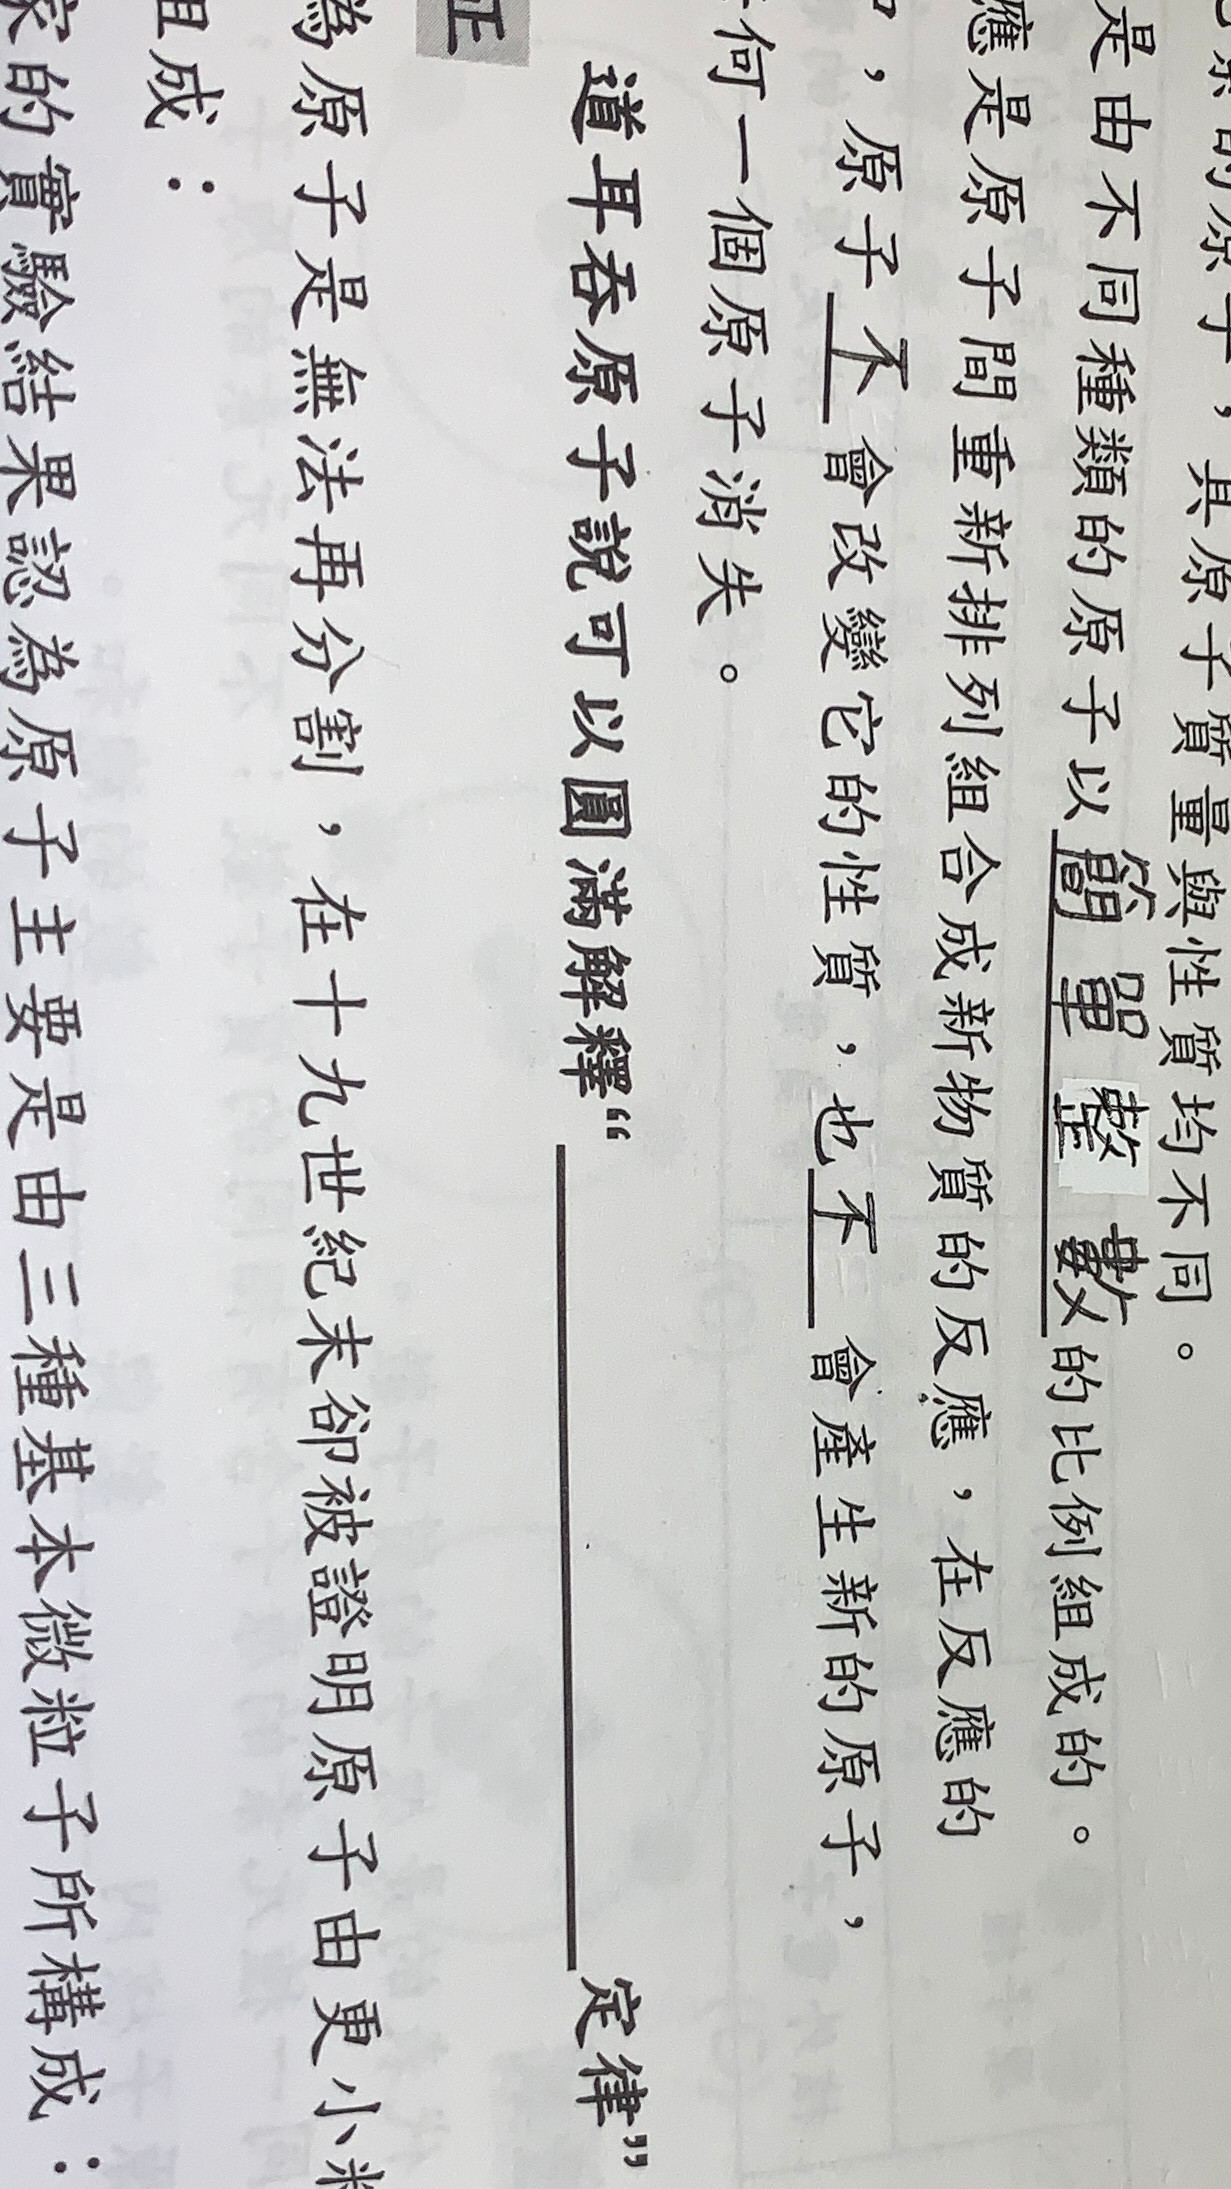 的原子，其原子質量與性質均不同。
是由不同種類的原子以簡單整數的比例組成的。
應是原子間重新排列組合成新物質的反應，在反應的
，原子不會改變它的性質，也不會產生新的原子，
何一個原子消失。
道耳吞原子說可以圓滿解釋“＿＿＿＿定律”
正
為原子是無法再分割，在十九世紀末卻被證明原子由更小
組成：
家的實驗結果認為原子主要是由三種基本微粒子所構成：